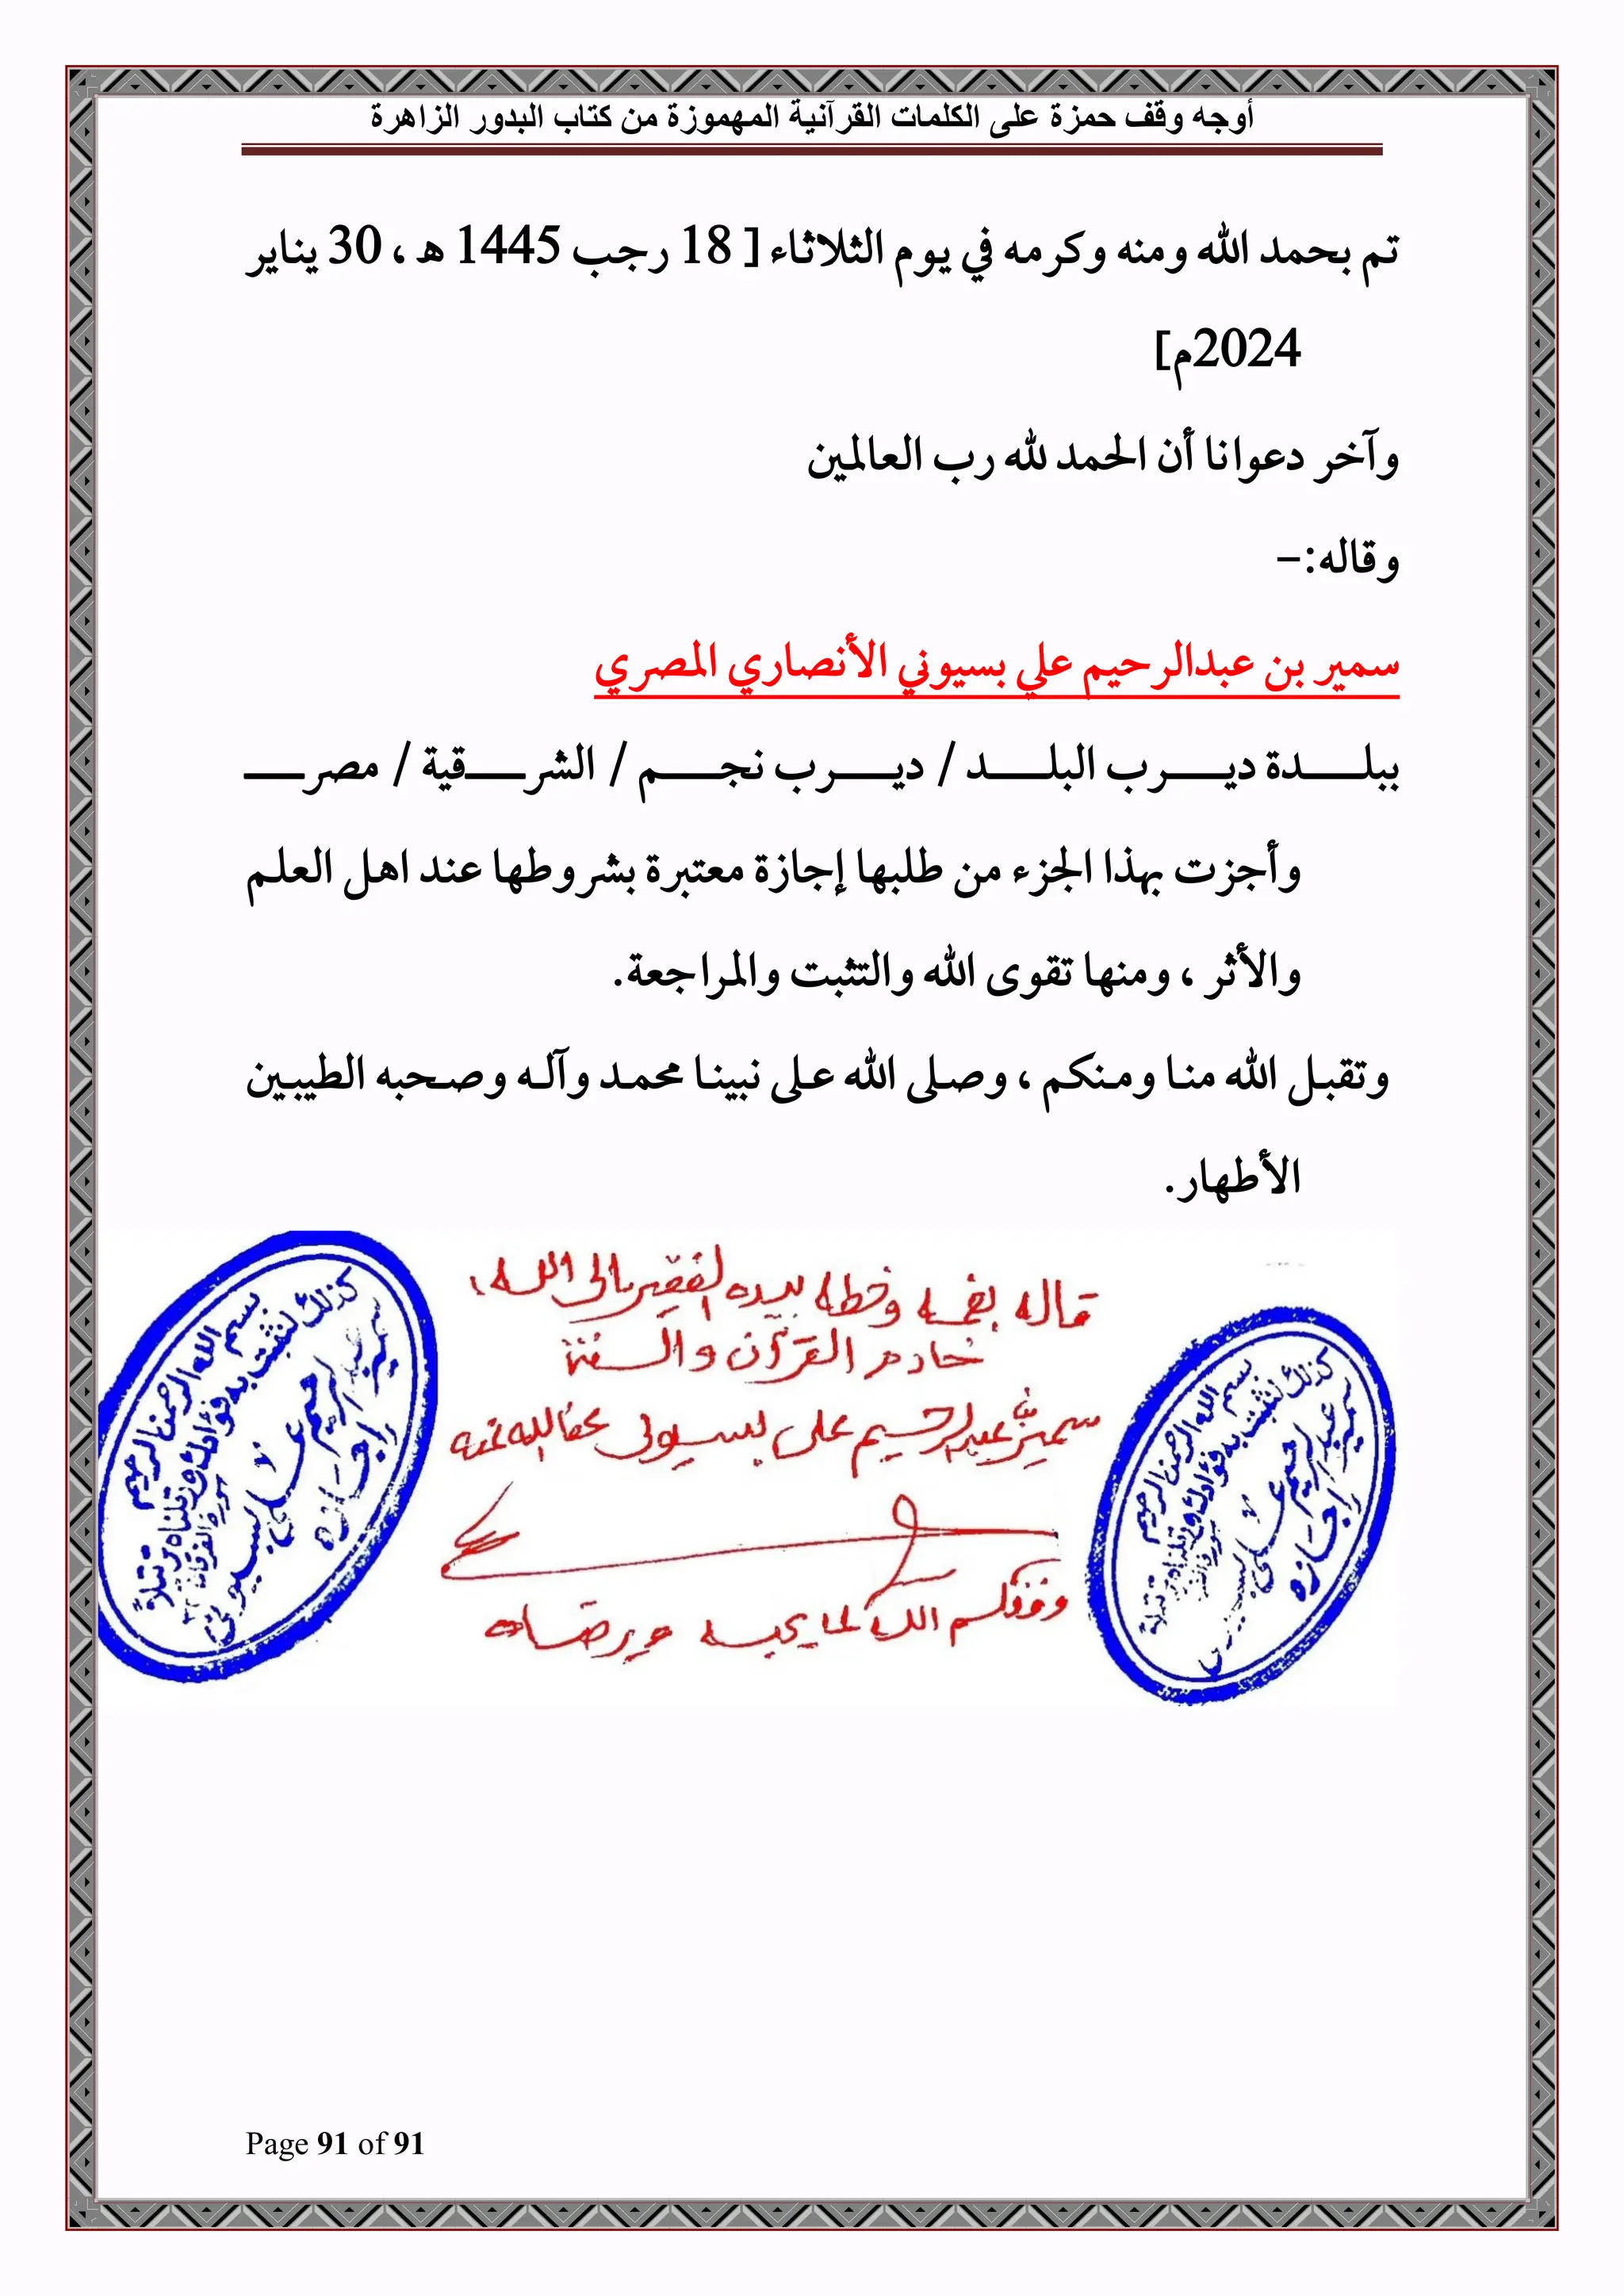 أوجه وقف حمزة على الكلمات القرآنية المهموزة من كتاب البدور الزاهرة
تم بحمد الله ومنه وكرمه في يوم الثلاثاء [ 18 رجب 1445 هـ ، 30 يناير
2024م]
وآخر دعوانا أن الحمد لله رب العالمين
وقاله:-
سمير بن عبدالرحيم علي بسيوني الأنصاري المصري
ببلــــدة ديــــرب البلــــد / ديــــرب نجــــم / الشرــــقية / مصرــــ
وأجزت بهذا الجزء من طلبها إجازة معتبرة بشروطها عند اهل العلم
والأثر ، ومنها تقوى الله والتثبت والمراجعة.
وتقبل الله منا ومنكم ، وصلى الله على نبينا محمد وآله وصحبه الطيبين
الأطهار.
قاله بفمه وخطه بيده الفقير إلى الله،
خادم القرآن والسنة
سمير بن عبدالرحيم علي بسيوني عفا الله عنه
وفقكم الله لما يحبه ويرضاه
بسم الله الرحمن الرحيم
كذلك لنثبت به فؤادك ورتلناه ترتيلاً
سورة الفرقان ٣٢
سمير عبد الرحيم علي بسيوني
إجازه
بسم الله الرحمن الرحيم
كذلك لنثبت به فؤادك ورتلناه ترتيلا
سمير عبد الرحيم علي بسيوني
إجازه
Page 91 of 91